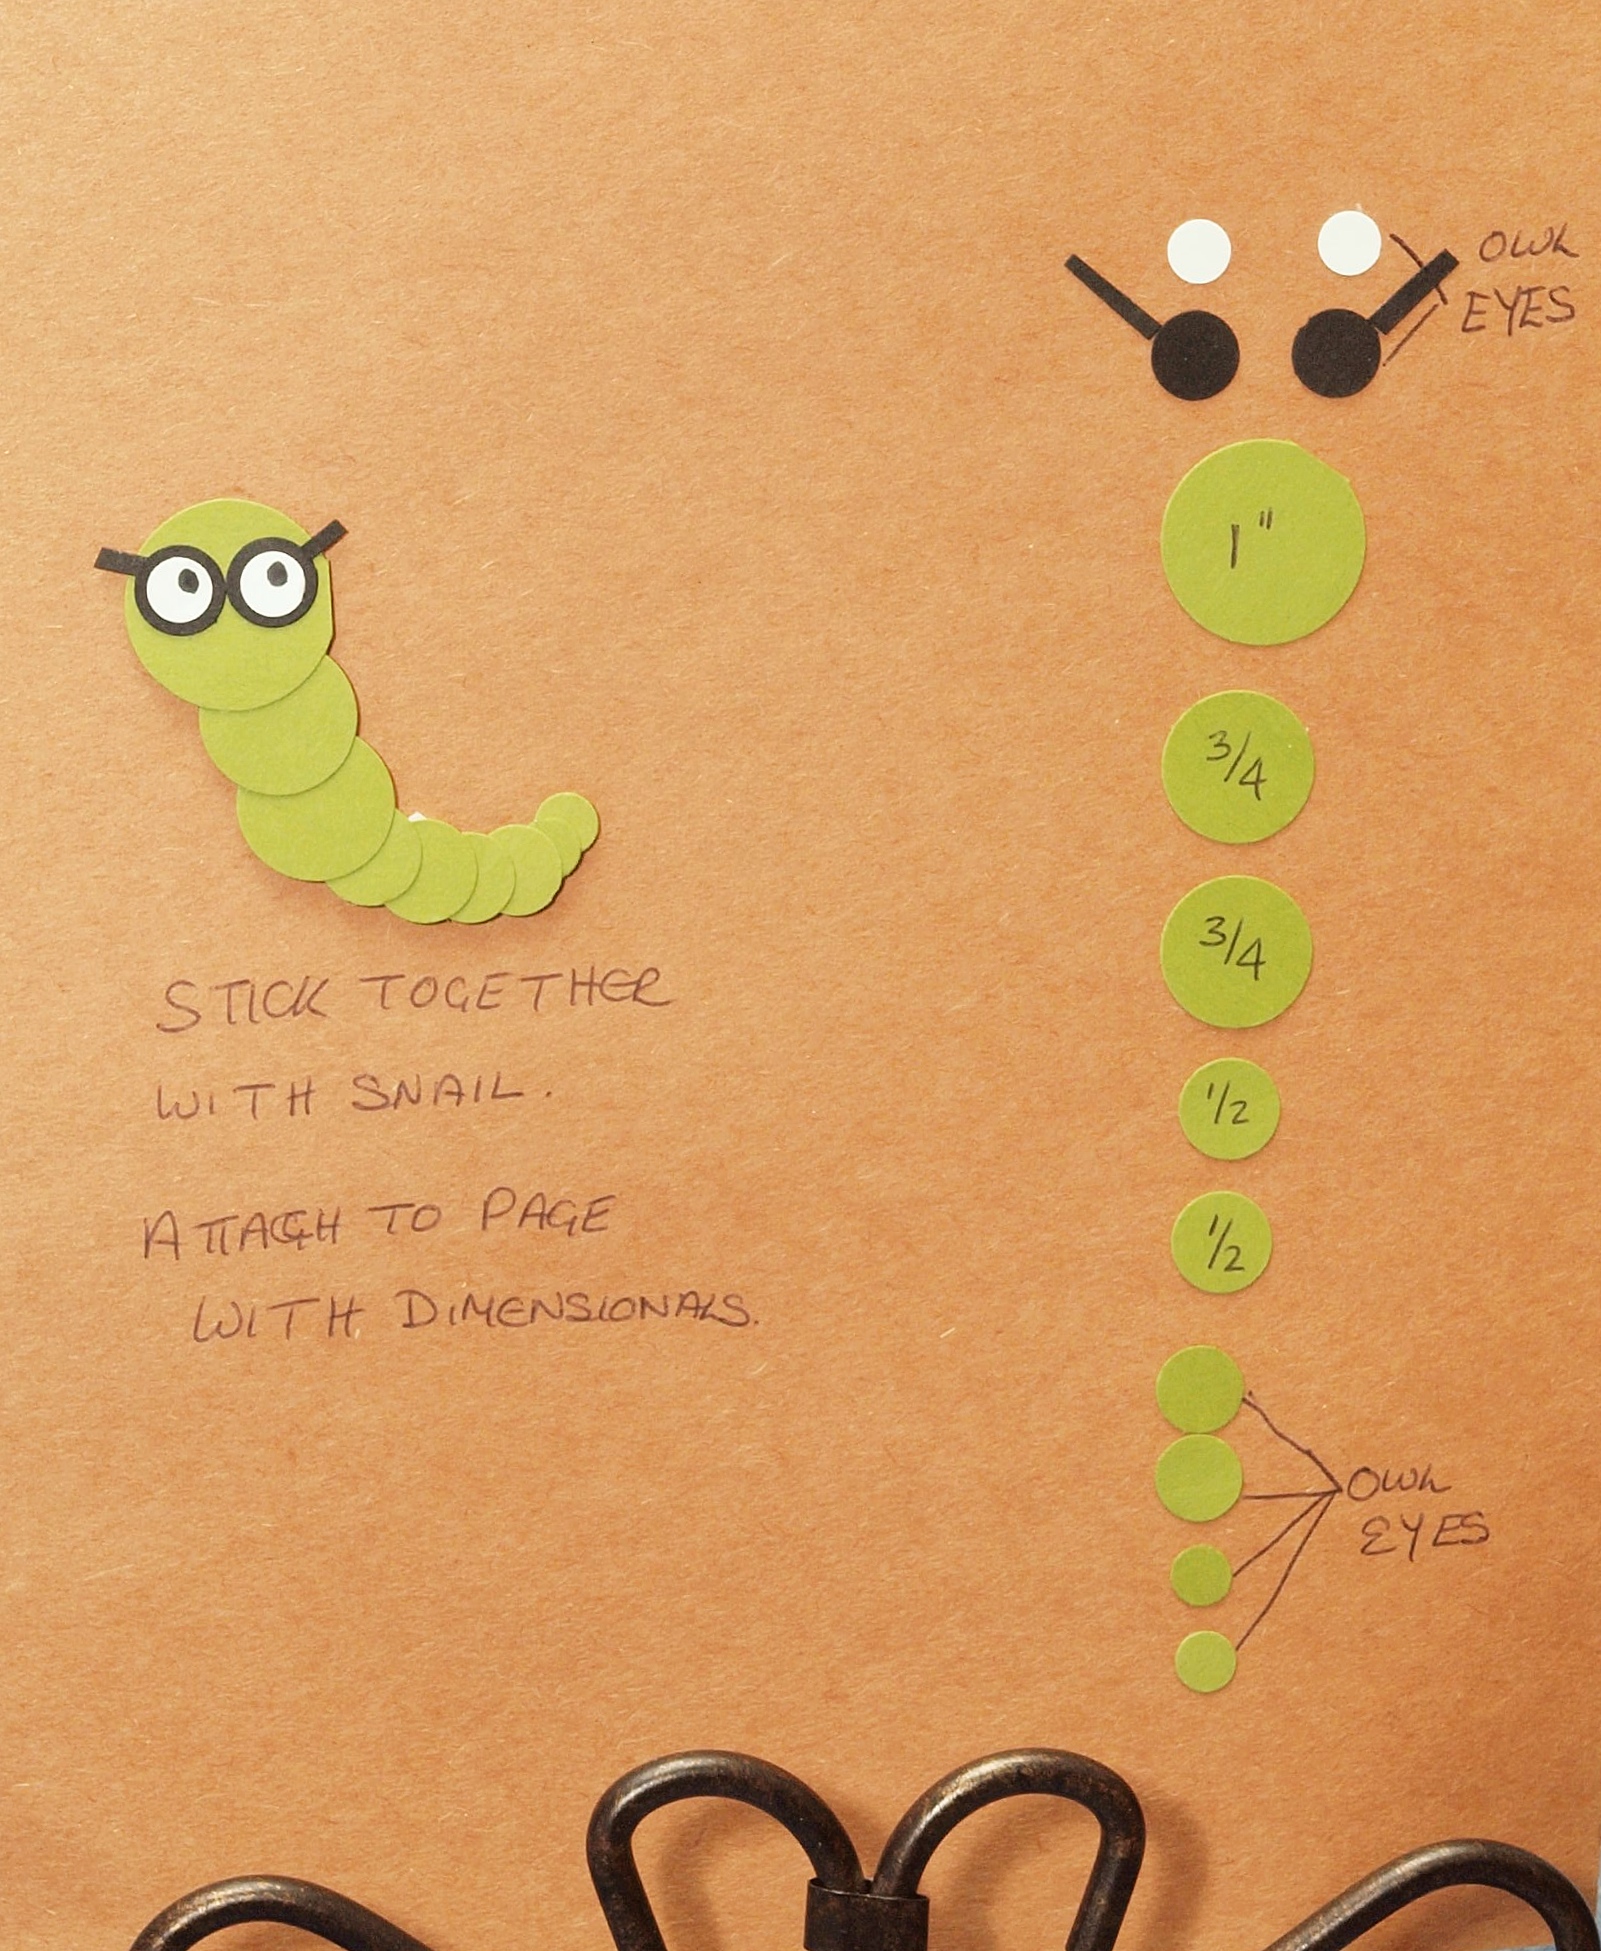 STICK TOGETHER
WITH SNAIL.
ATTACH TO PAGE
WITH DIMENSIONALS.
OWL
EYES
1"
3/4
3/4
1/2
1/2
OWL
EYES